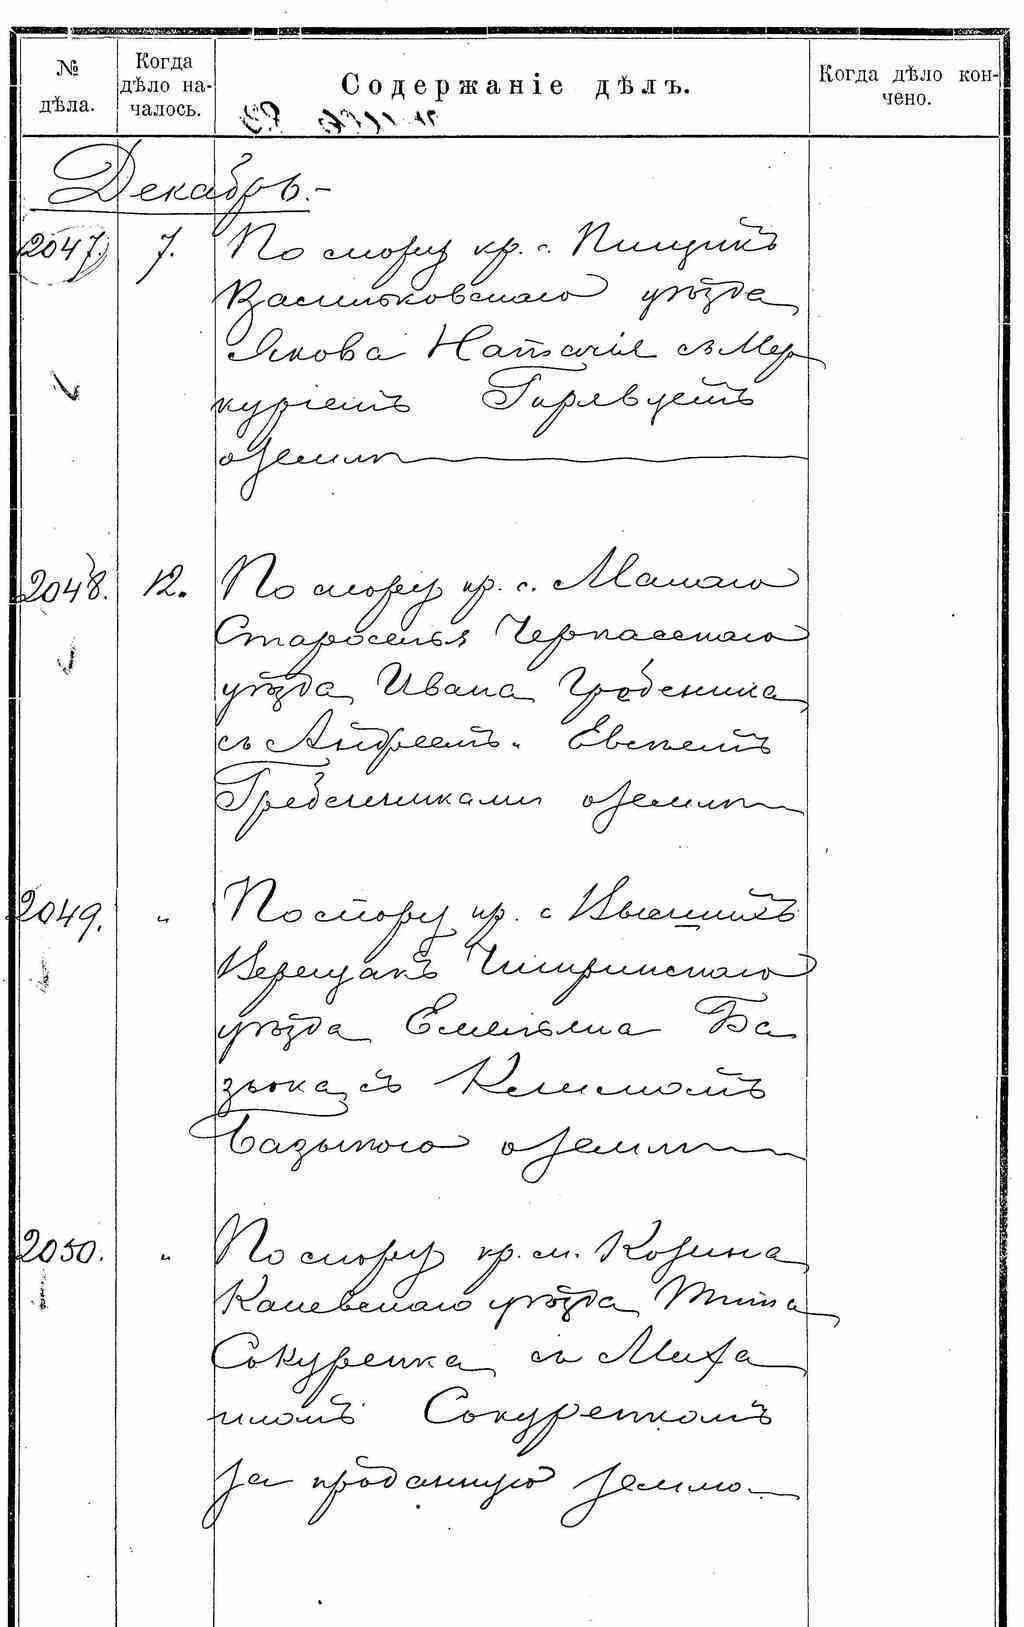 № дѣла.
Когда дѣло началось.
Содержаніе дѣлъ.
Когда дѣло кончено.
Декабрь.-
2047. 7. По спору кр. с. Пищикъ
Васильковскаго уѣзда
Якова Наталія съ Мер
куріемъ
о землѣ
2048. 12. По спору кр. с. Малаго
Староселья Черкасскаго
уѣзда Ивана Гребеника
съ Андреемъ и Евсѣемъ
Гребенниками о землѣ
2049. " По спору кр. с Высшихъ
Верещакъ Чигиринскаго
уѣзда Емельяна Ба
зыка съ Климомъ
Базыкою о землѣ
2050. " По спору кр. м. Козина
Каневскаго уѣзда Тита
Сокуренка съ Миха
иломъ Сокуренкомъ
за проданную землю.